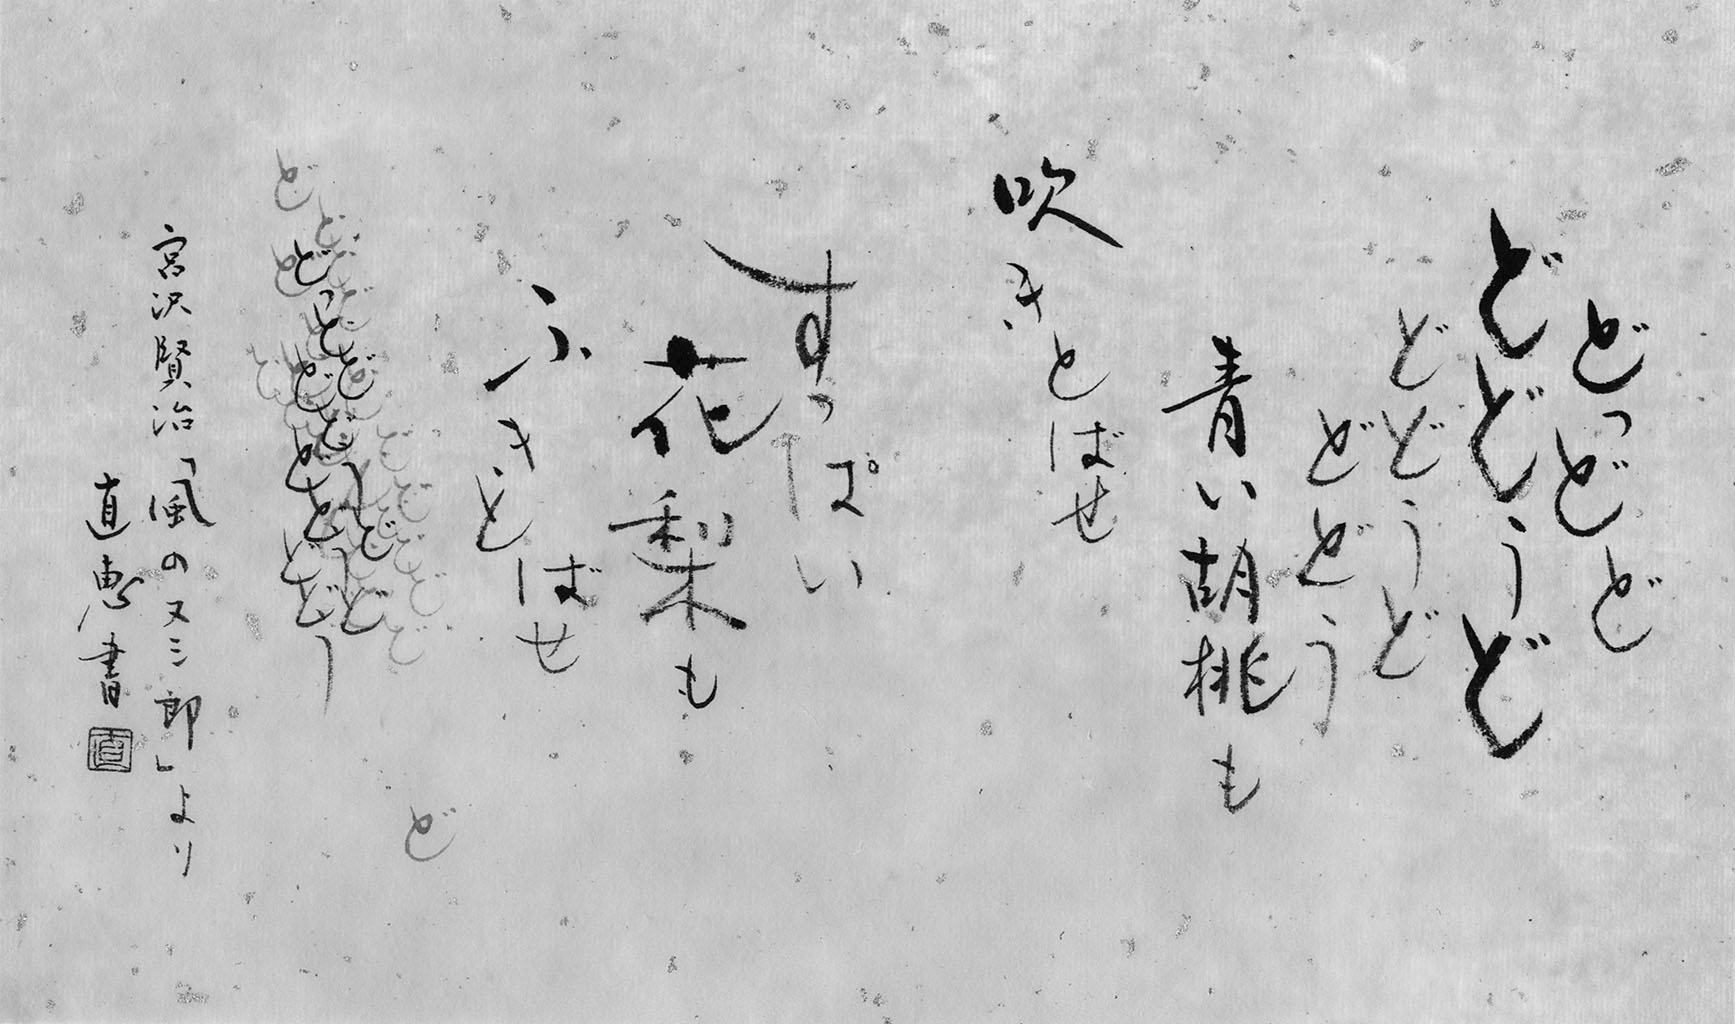 どっどど
どどうど
どどうど
どどう
青い胡桃も
吹きとばせ
すっぱい
花梨も
ふきとばせ
どっどどどどうどどどうどどどう
ど
宮沢賢治「風の又三郎」より
直恵書
直